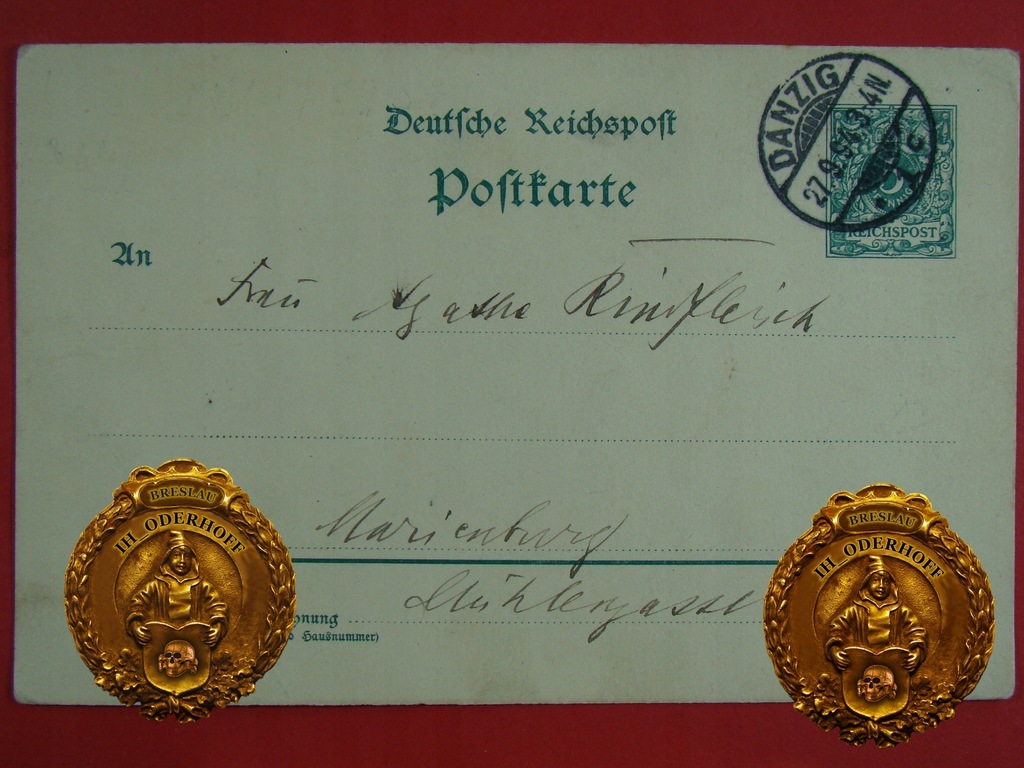 Deutsche Reichspost
Postkarte
DANZIG
27.9.97.3-4N.
* 1 c
REICHSPOST
An
Frau Agathe Rindfleisch
Marienburg
Mühlengasse
hnung
Hausnummer)
BRESLAU
IH_ODERHOFF
BRESLAU
IH_ODERHOFF